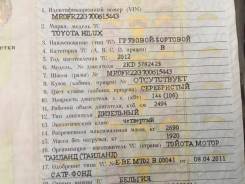 1. Идентификационный номер (VIN)
MR0FR22G700615443
2. Марка, модель ТС
TOYOTA HILUX
3. Наименование (тип ТС) ГРУЗОВОЙ БОРТОВОЙ
4. Категория ТС (А, В, С, D, прицеп) В
5. Год изготовления ТС 2012
6. Модель, № двигателя 2KD 5782423
7. Шасси (рама) № MR0FR22G700615443
8. Кузов (кабина, прицеп) № ОТСУТСТВУЕТ
9. Цвет кузова (кабины, прицепа) СЕРЕБРИСТЫЙ
10. Мощность двигателя, л.с. (кВт) 144 (106)
11. Рабочий объем двигателя, куб. см 2494
12. Тип двигателя ДИЗЕЛЬНЫЙ
13. Экологический класс четвертый
14. Разрешенная максимальная масса, кг 2690
15. Масса без нагрузки, кг 1920
16. Организация-изготовитель ТС (страна) ТОЙОТА МОТОР
ТАИЛАНД (ТАИЛАНД)
17. Одобрение типа ТС № E-BE.MT02.B.00041 от 08.04.2011
САТР-ФОНД
БЕЛЬГИЯ